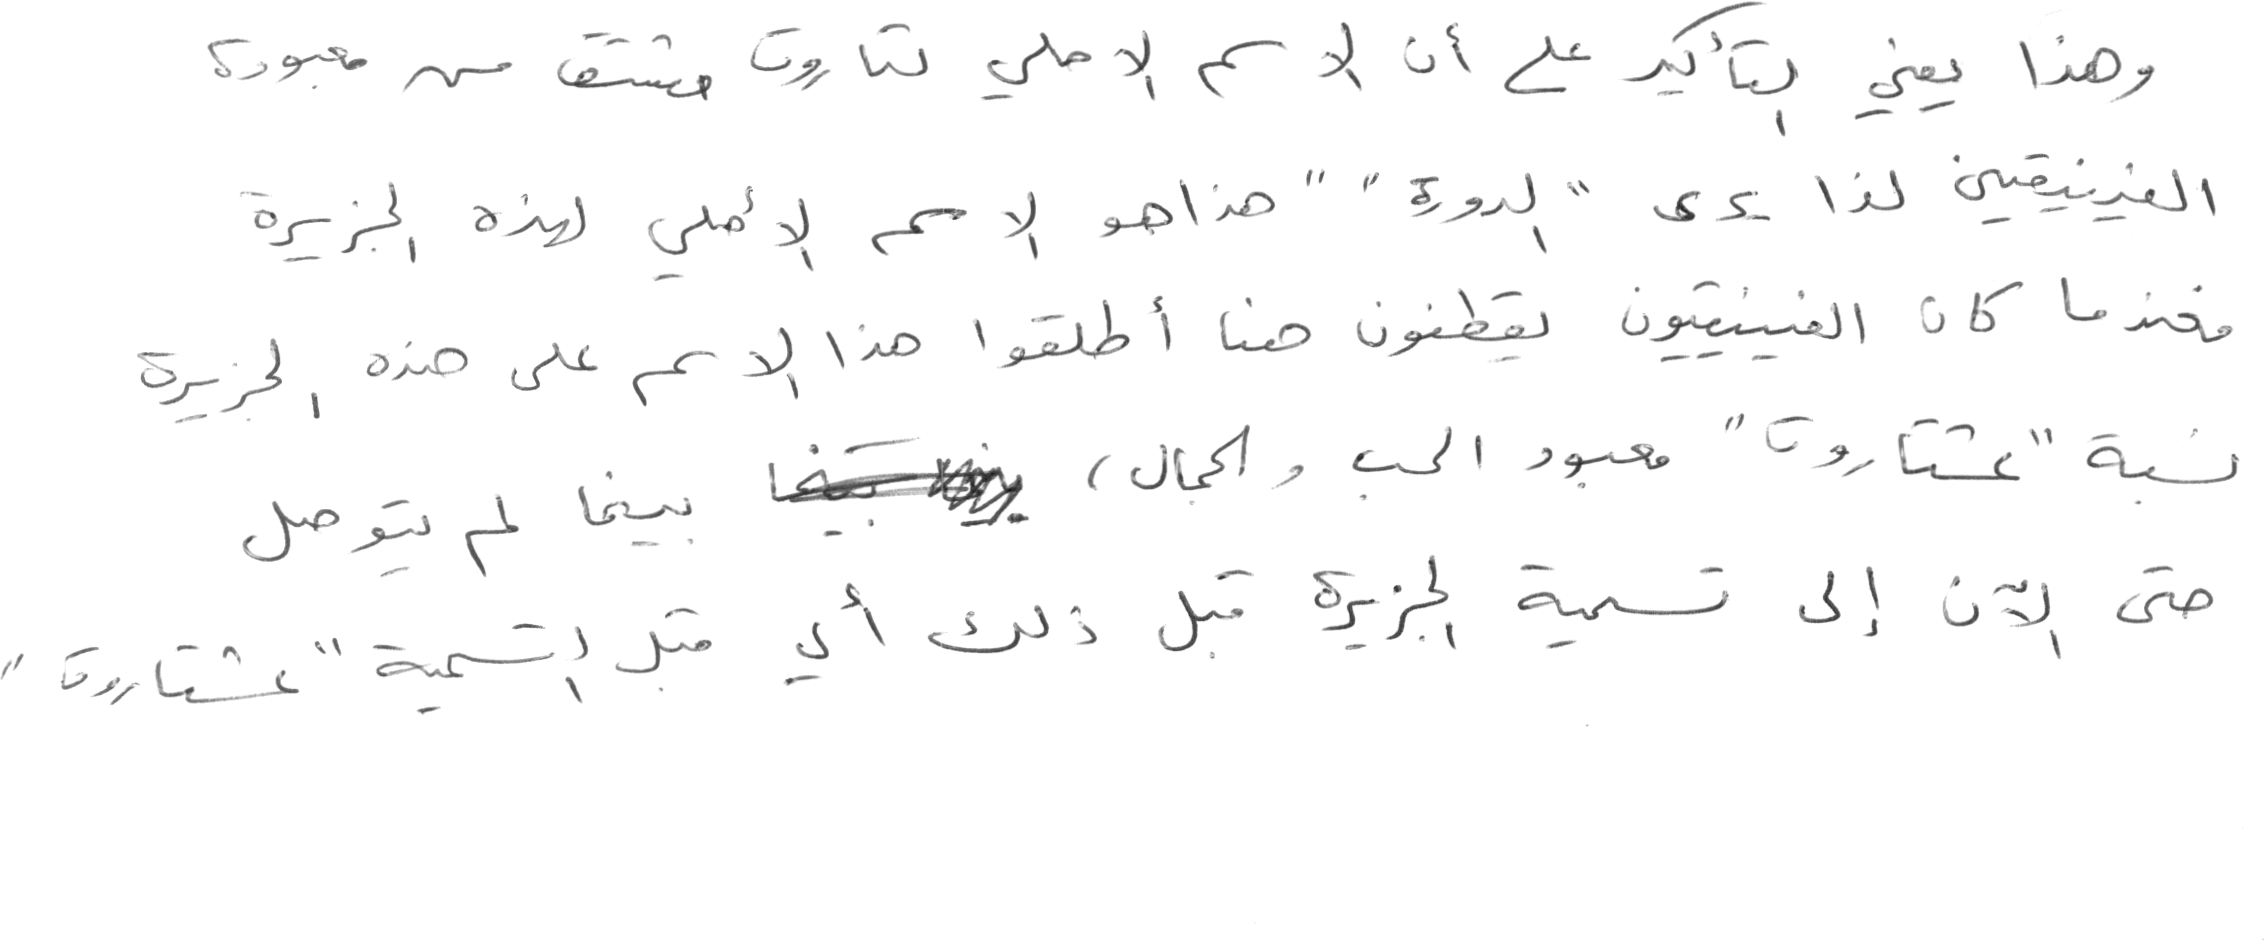 وهذا يعني التأكيد على أن الاسم الاصلي لتاروت مشتق من معبودة
الفينيقين لذا يرى "الدورة" "هذا هو الاسم الأصلي لهذه الجزيرة
فعندما كان الفينيقيون يقطنون هنا أطلقوا هذا الاسم على هذه الجزيرة
نسبة "عشتاروت" معبود الحب والجمال، بينما لم يتوصل
حتى الآن إلى تسمية الجزيرة قبل ذلك أي قبل التسمية "عشتاروت"